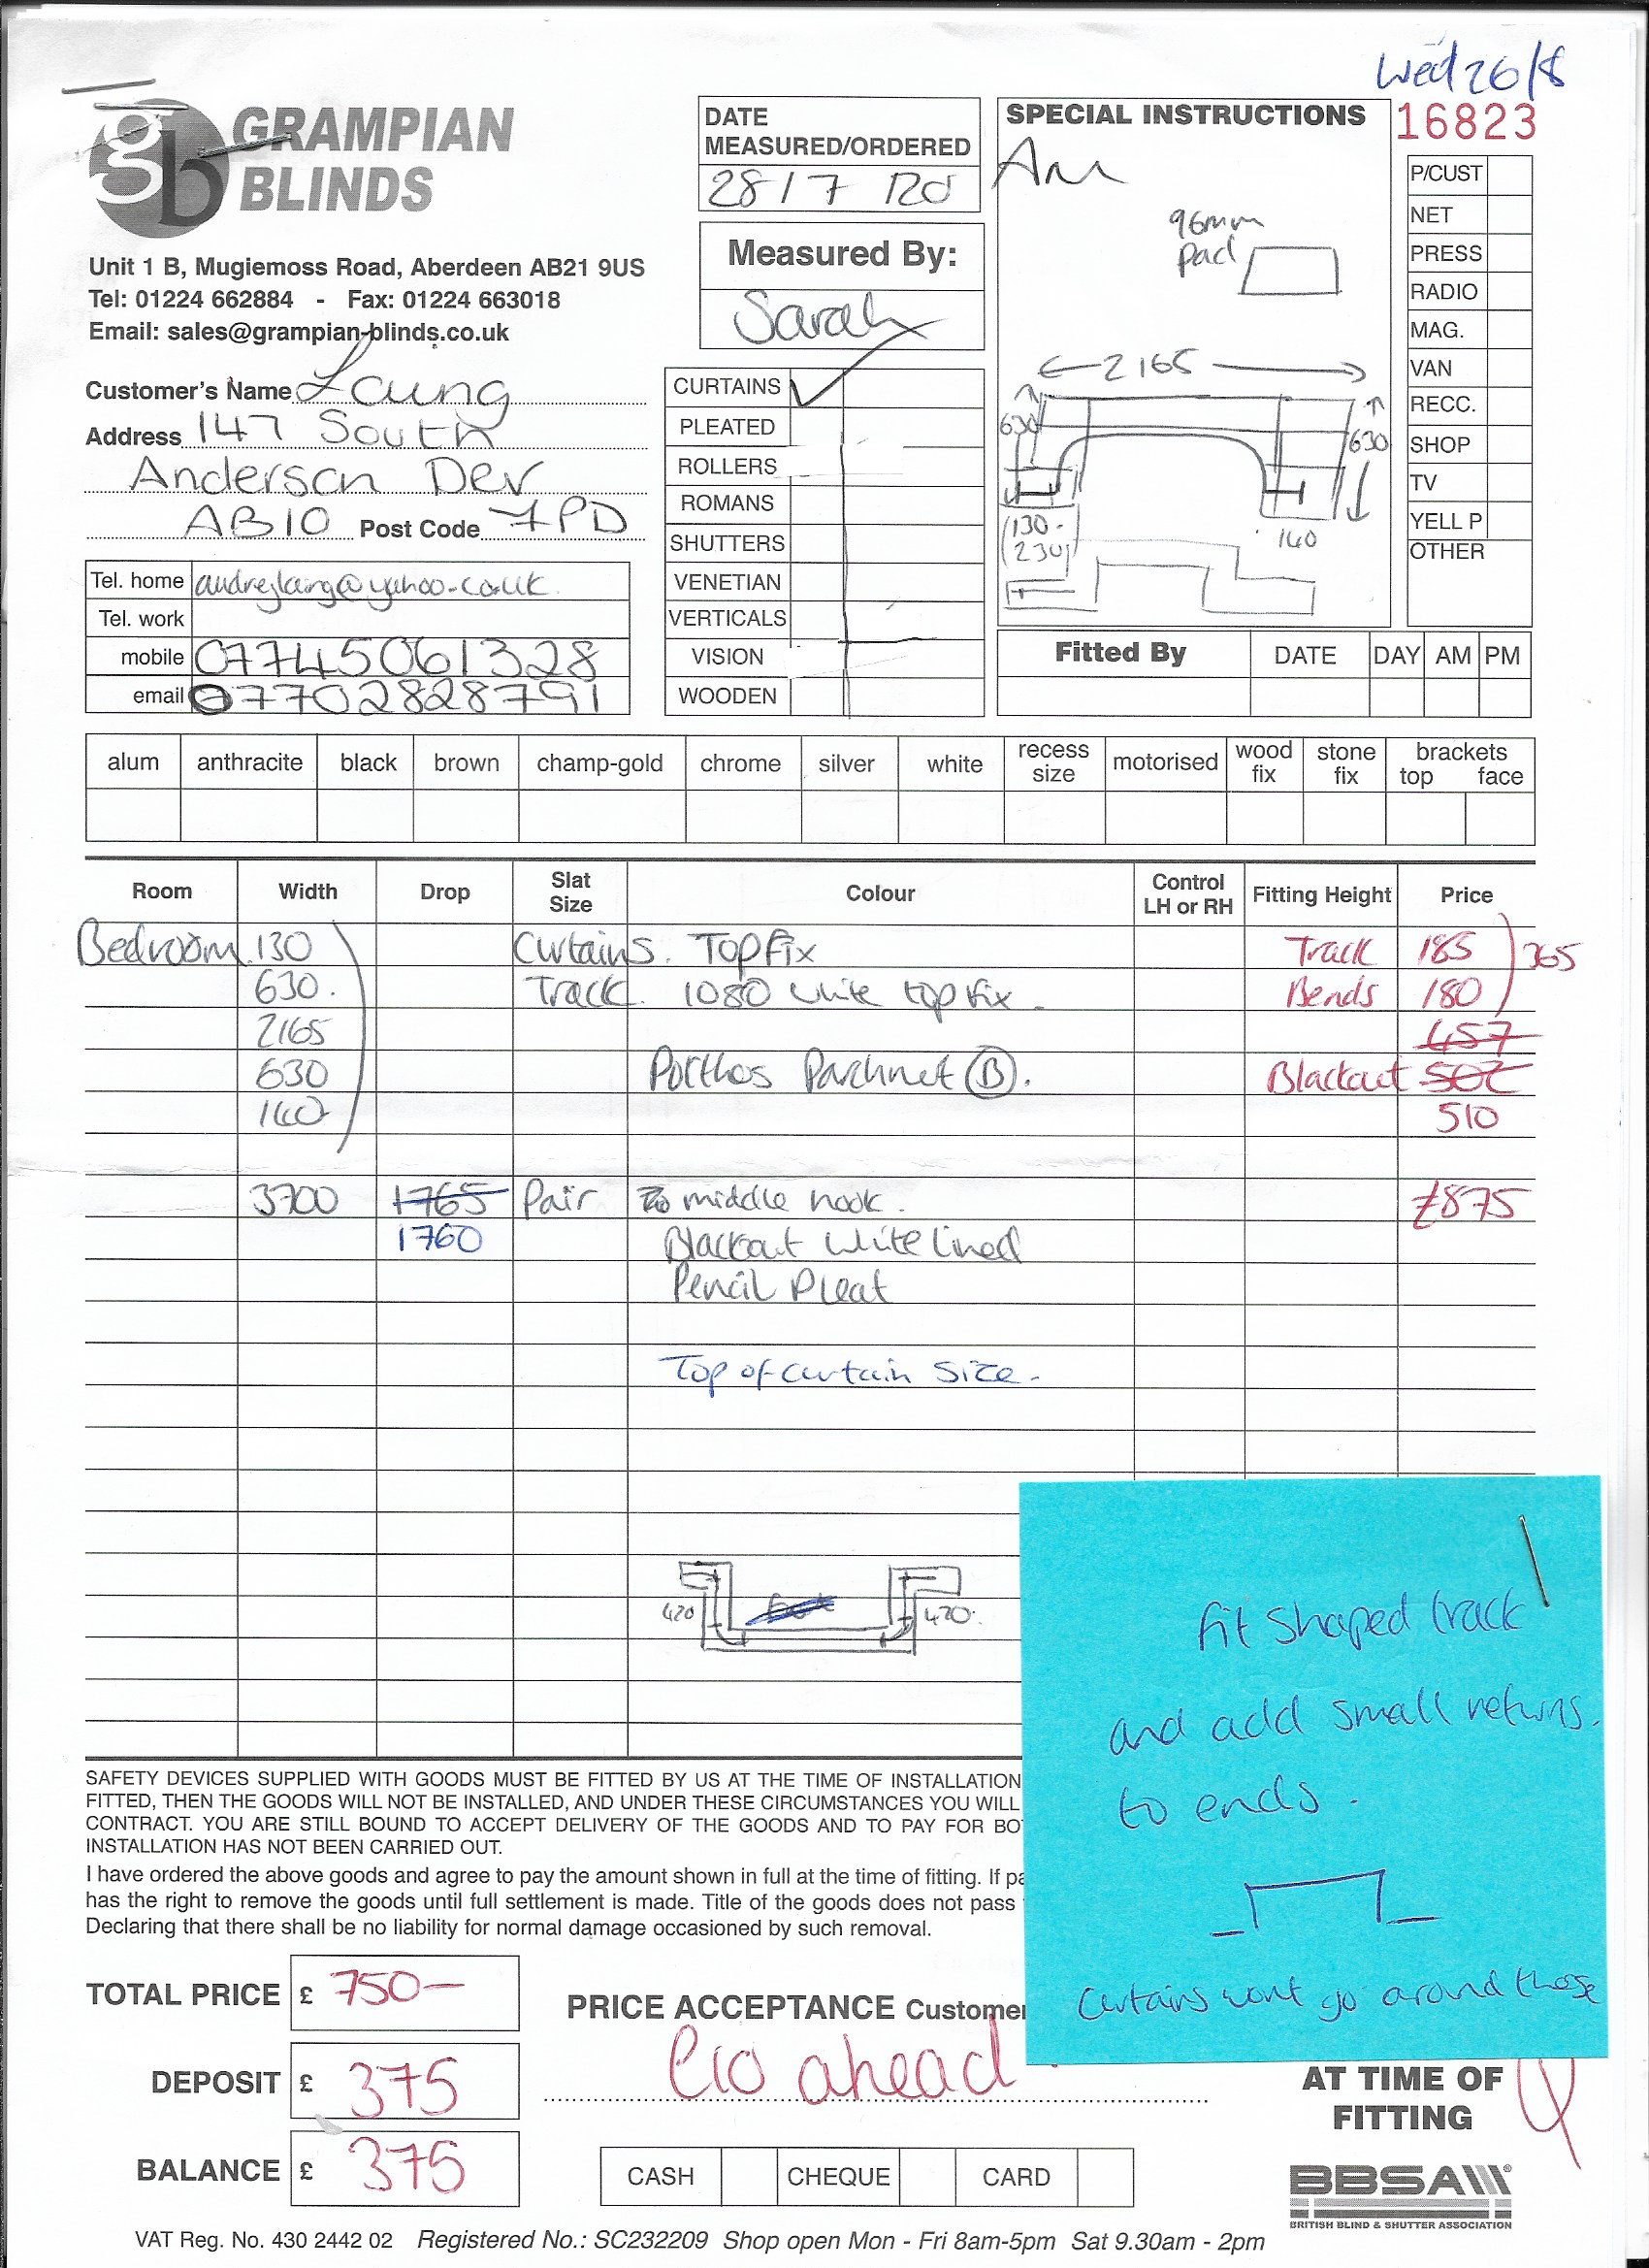 Wed 26/8
GRAMPIAN
BLINDS
gb
Unit 1 B, Mugiemoss Road, Aberdeen AB21 9US
Tel: 01224 662884 - Fax: 01224 663018
Email: sales@grampian-blinds.co.uk
Customer's Name Laing
Address 147 South
Anderson Dev
AB10 Post Code 7PD
Tel. home
Tel. work
mobile 07745061328
email 07702828791
DATE
MEASURED/ORDERED
28/7
Measured By:
Sarah
CURTAINS ✓
PLEATED
ROLLERS
ROMANS
SHUTTERS
VENETIAN
VERTICALS
VISION
WOODEN
SPECIAL INSTRUCTIONS
Am
96mm
pad
2165
630
630
130-
230
140
16823
P/CUST
NET
PRESS
RADIO
MAG.
VAN
RECC.
SHOP
TV
YELL P
OTHER
Fitted By DATE DAY AM PM
alum anthracite black brown champ-gold chrome silver white recess size motorised wood fix stone fix brackets top face
Room Width Drop Slat Size Colour Control LH or RH Fitting Height Price
Bedroom 130 Curtains. Top Fix Track 185 365
630. Track. 1080 white top fix. Bends 180
2165 457
630 Porthos Parchnet (B). Blackout 502
140 510
3700 1765 Pair middle hook. £875
1760 Blackout white lined
Pencil Pleat
Top of curtain size.
420 420
fit shaped track
and add small returns.
to ends.
curtains wont go around these
SAFETY DEVICES SUPPLIED WITH GOODS MUST BE FITTED BY US AT THE TIME OF INSTALLATION
FITTED, THEN THE GOODS WILL NOT BE INSTALLED, AND UNDER THESE CIRCUMSTANCES YOU WILL
CONTRACT. YOU ARE STILL BOUND TO ACCEPT DELIVERY OF THE GOODS AND TO PAY FOR BO
INSTALLATION HAS NOT BEEN CARRIED OUT.
I have ordered the above goods and agree to pay the amount shown in full at the time of fitting. If pa
has the right to remove the goods until full settlement is made. Title of the goods does not pass
Declaring that there shall be no liability for normal damage occasioned by such removal.
TOTAL PRICE £ 750—
DEPOSIT £ 375
BALANCE £ 375
PRICE ACCEPTANCE Customer
ahead
CASH CHEQUE CARD
AT TIME OF
FITTING
BBSA
BRITISH BLIND & SHUTTER ASSOCIATION
VAT Reg. No. 430 2442 02 Registered No.: SC232209 Shop open Mon - Fri 8am-5pm Sat 9.30am - 2pm